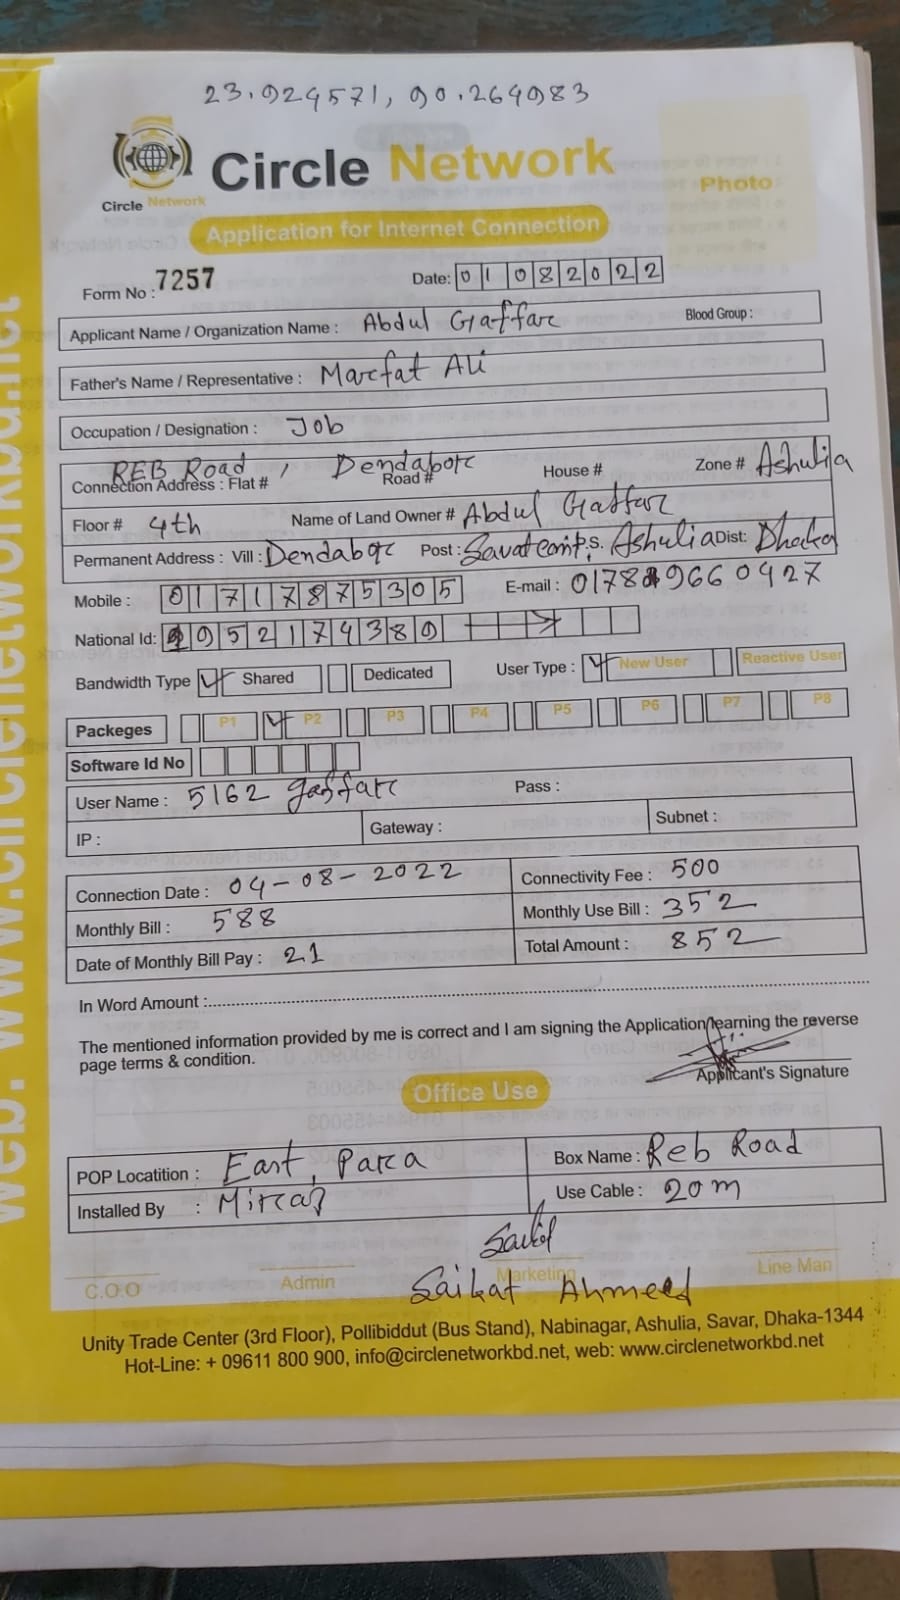 23.924571, 90.264983
Circle Network
Circle Network
Photo
Application for Internet Connection
Form No : 7257
Date: 01 08 2022
Applicant Name / Organization Name : Abdul Gaffar Blood Group :
Father's Name / Representative : Marfat Ali
Occupation / Designation : Job
REB Road , Dendabor
Connection Address : Flat # Road # House # Zone # Ashulia
Floor # 4th Name of Land Owner # Abdul Gaffar
Permanent Address : Vill : Dendabor Post : Savar P.S. Ashulia Dist: Dhaka
Mobile : 01717875305 E-mail :
National Id: 952174389
Bandwidth Type Shared Dedicated User Type : New User Reactive User
Packeges P1 P2 P3 P4 P5 P6 P7 P8
Software Id No
User Name : 5162 gaffar Pass :
IP : Gateway : Subnet :
Connection Date : 04-08-2022 Connectivity Fee : 500
Monthly Bill : 588 Monthly Use Bill : 352
Date of Monthly Bill Pay : 21 Total Amount : 852
In Word Amount :
The mentioned information provided by me is correct and I am signing the Application learning the reverse
page terms & condition.
Applicant's Signature
Office Use
POP Locatition : East, Para Box Name : Reb Road
Installed By : Miraj Use Cable : 20m
C.O.O Admin Marketing Line Man
Saikat Ahmed
Unity Trade Center (3rd Floor), Pollibiddut (Bus Stand), Nabinagar, Ashulia, Savar, Dhaka-1344
Hot-Line: + 09611 800 900, info@circlenetworkbd.net, web: www.circlenetworkbd.net
web: www.circlenetworkbd.net